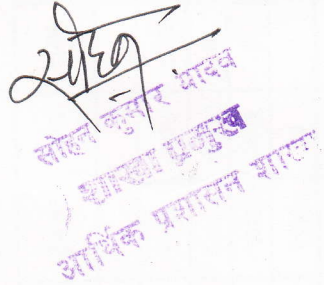 सोहन कुमार यादव
शाखा प्रमुख
आर्थिक प्रशासन शाखा